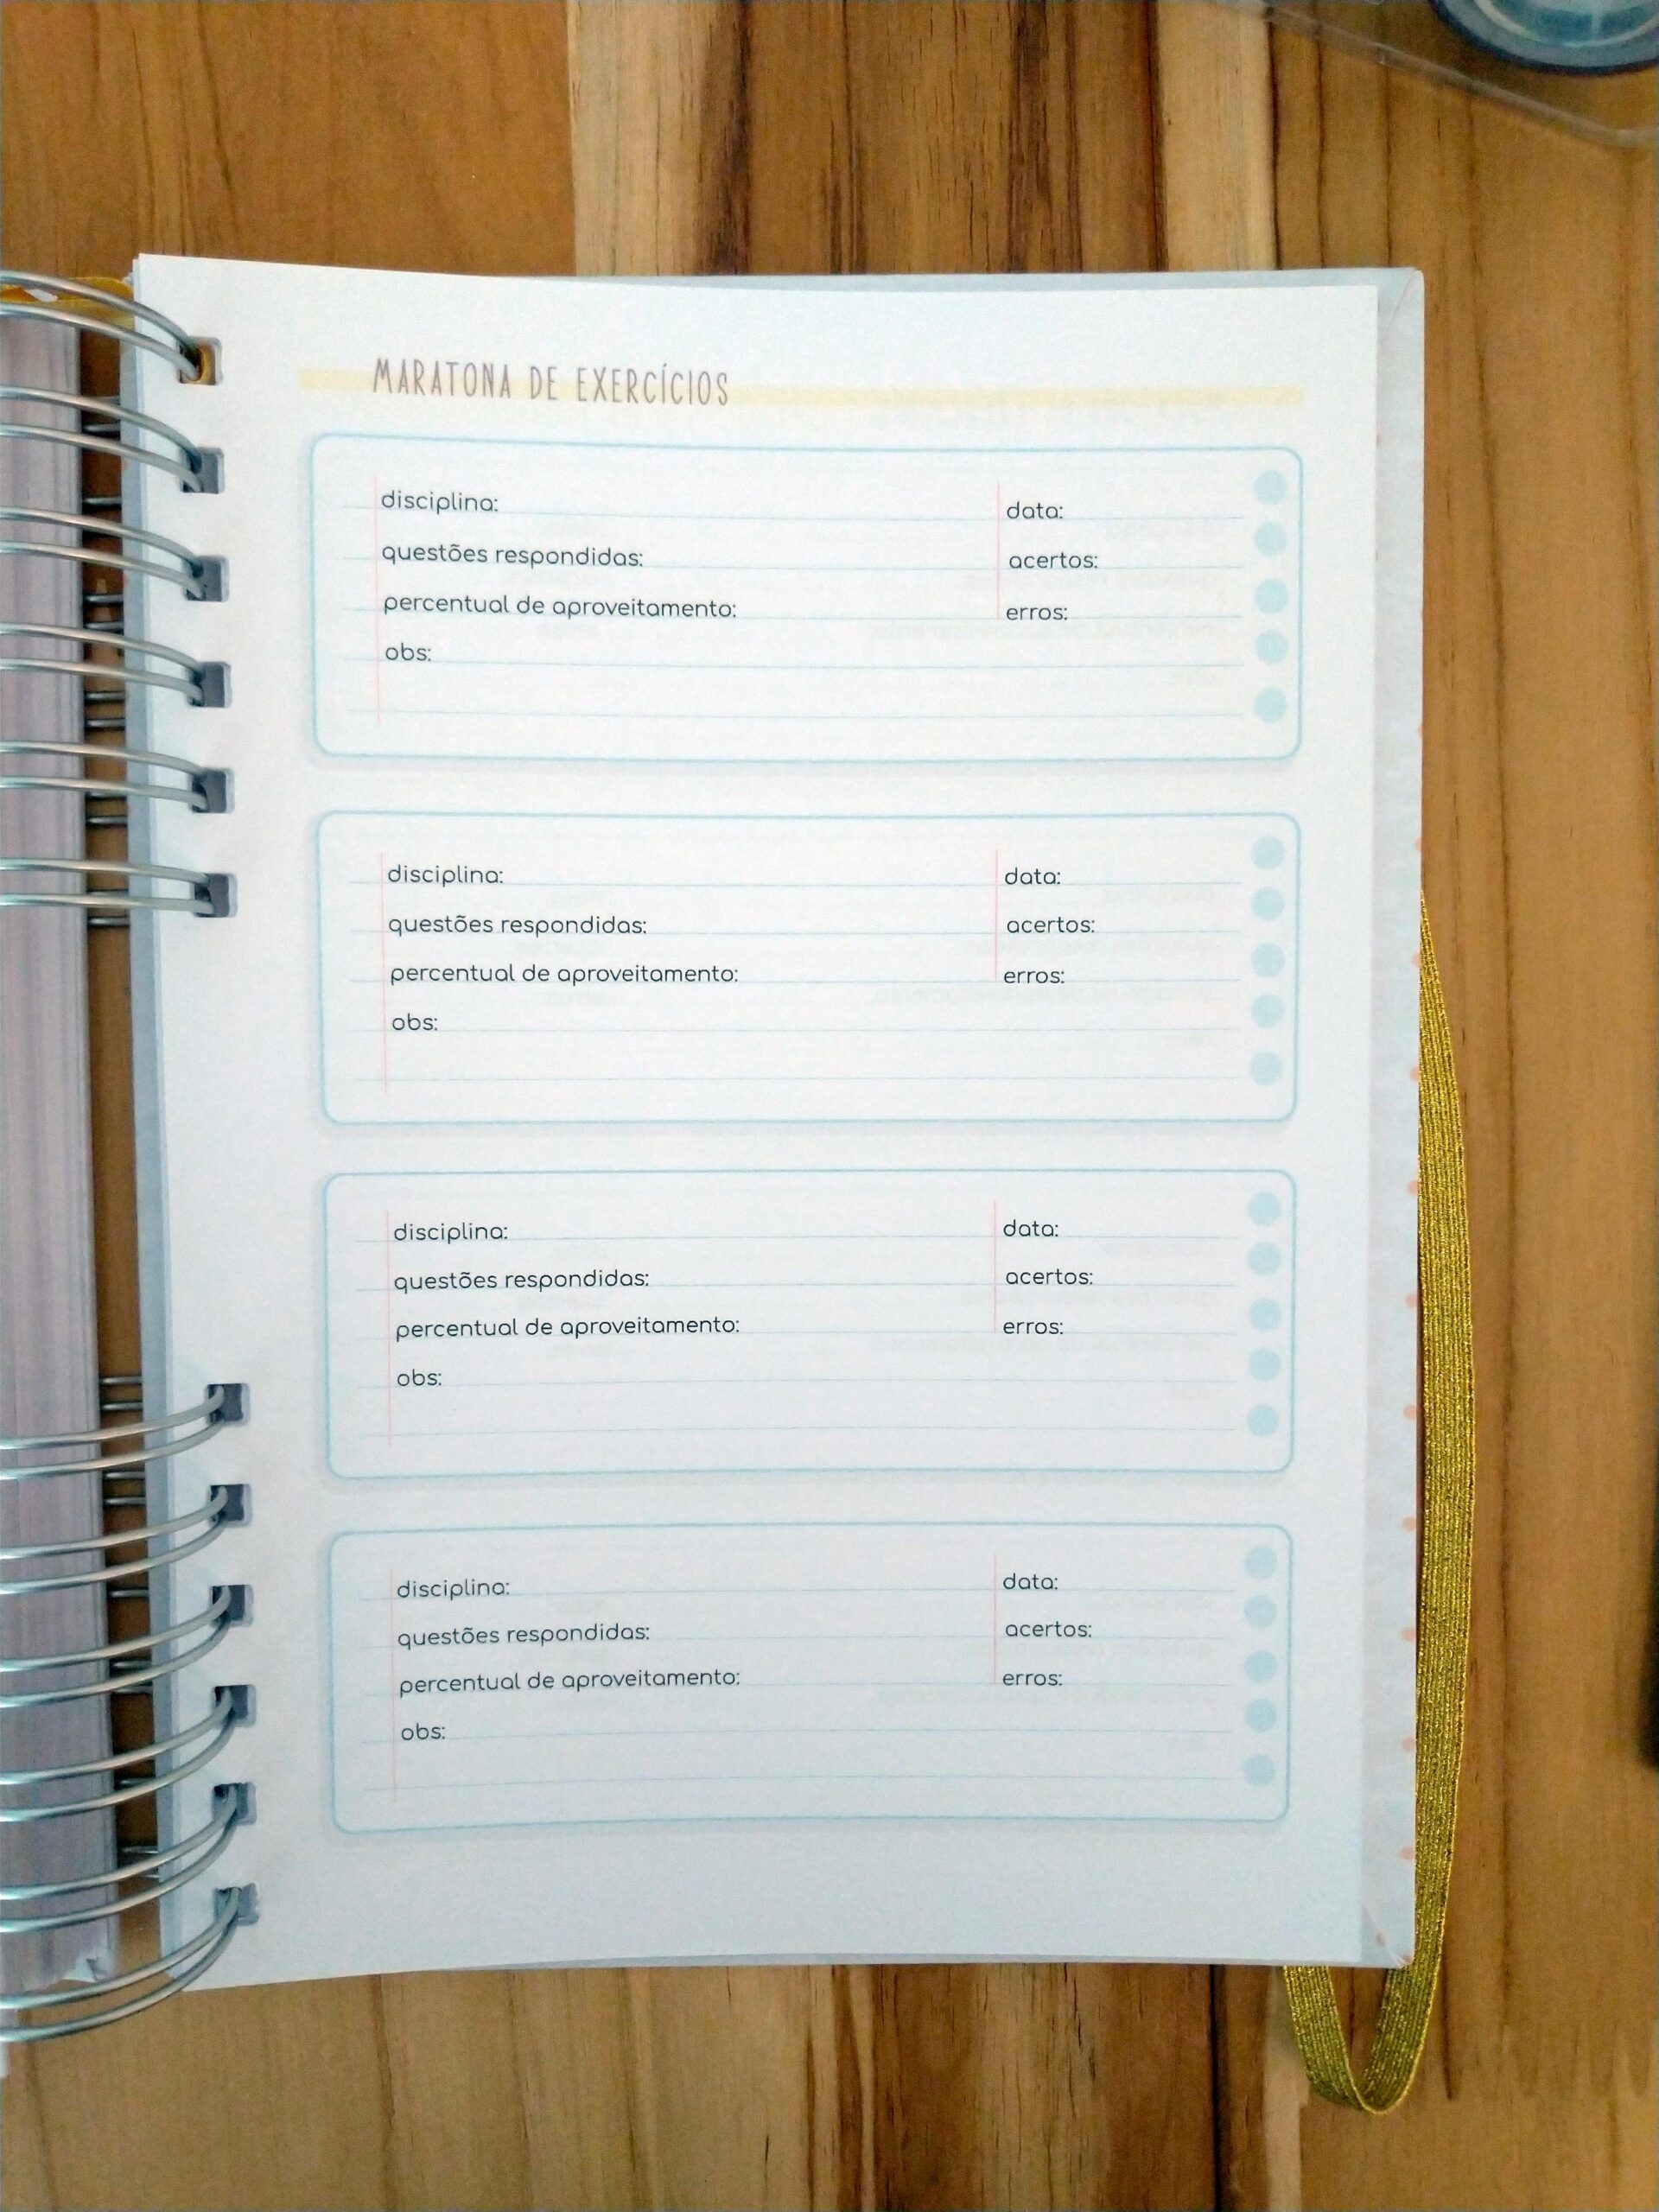 MARATONA DE EXERCÍCIOS
disciplina: data:
questões respondidas: acertos:
percentual de aproveitamento: erros:
obs:
disciplina: data:
questões respondidas: acertos:
percentual de aproveitamento: erros:
obs:
disciplina: data:
questões respondidas: acertos:
percentual de aproveitamento: erros:
obs:
disciplina: data:
questões respondidas: acertos:
percentual de aproveitamento: erros:
obs: